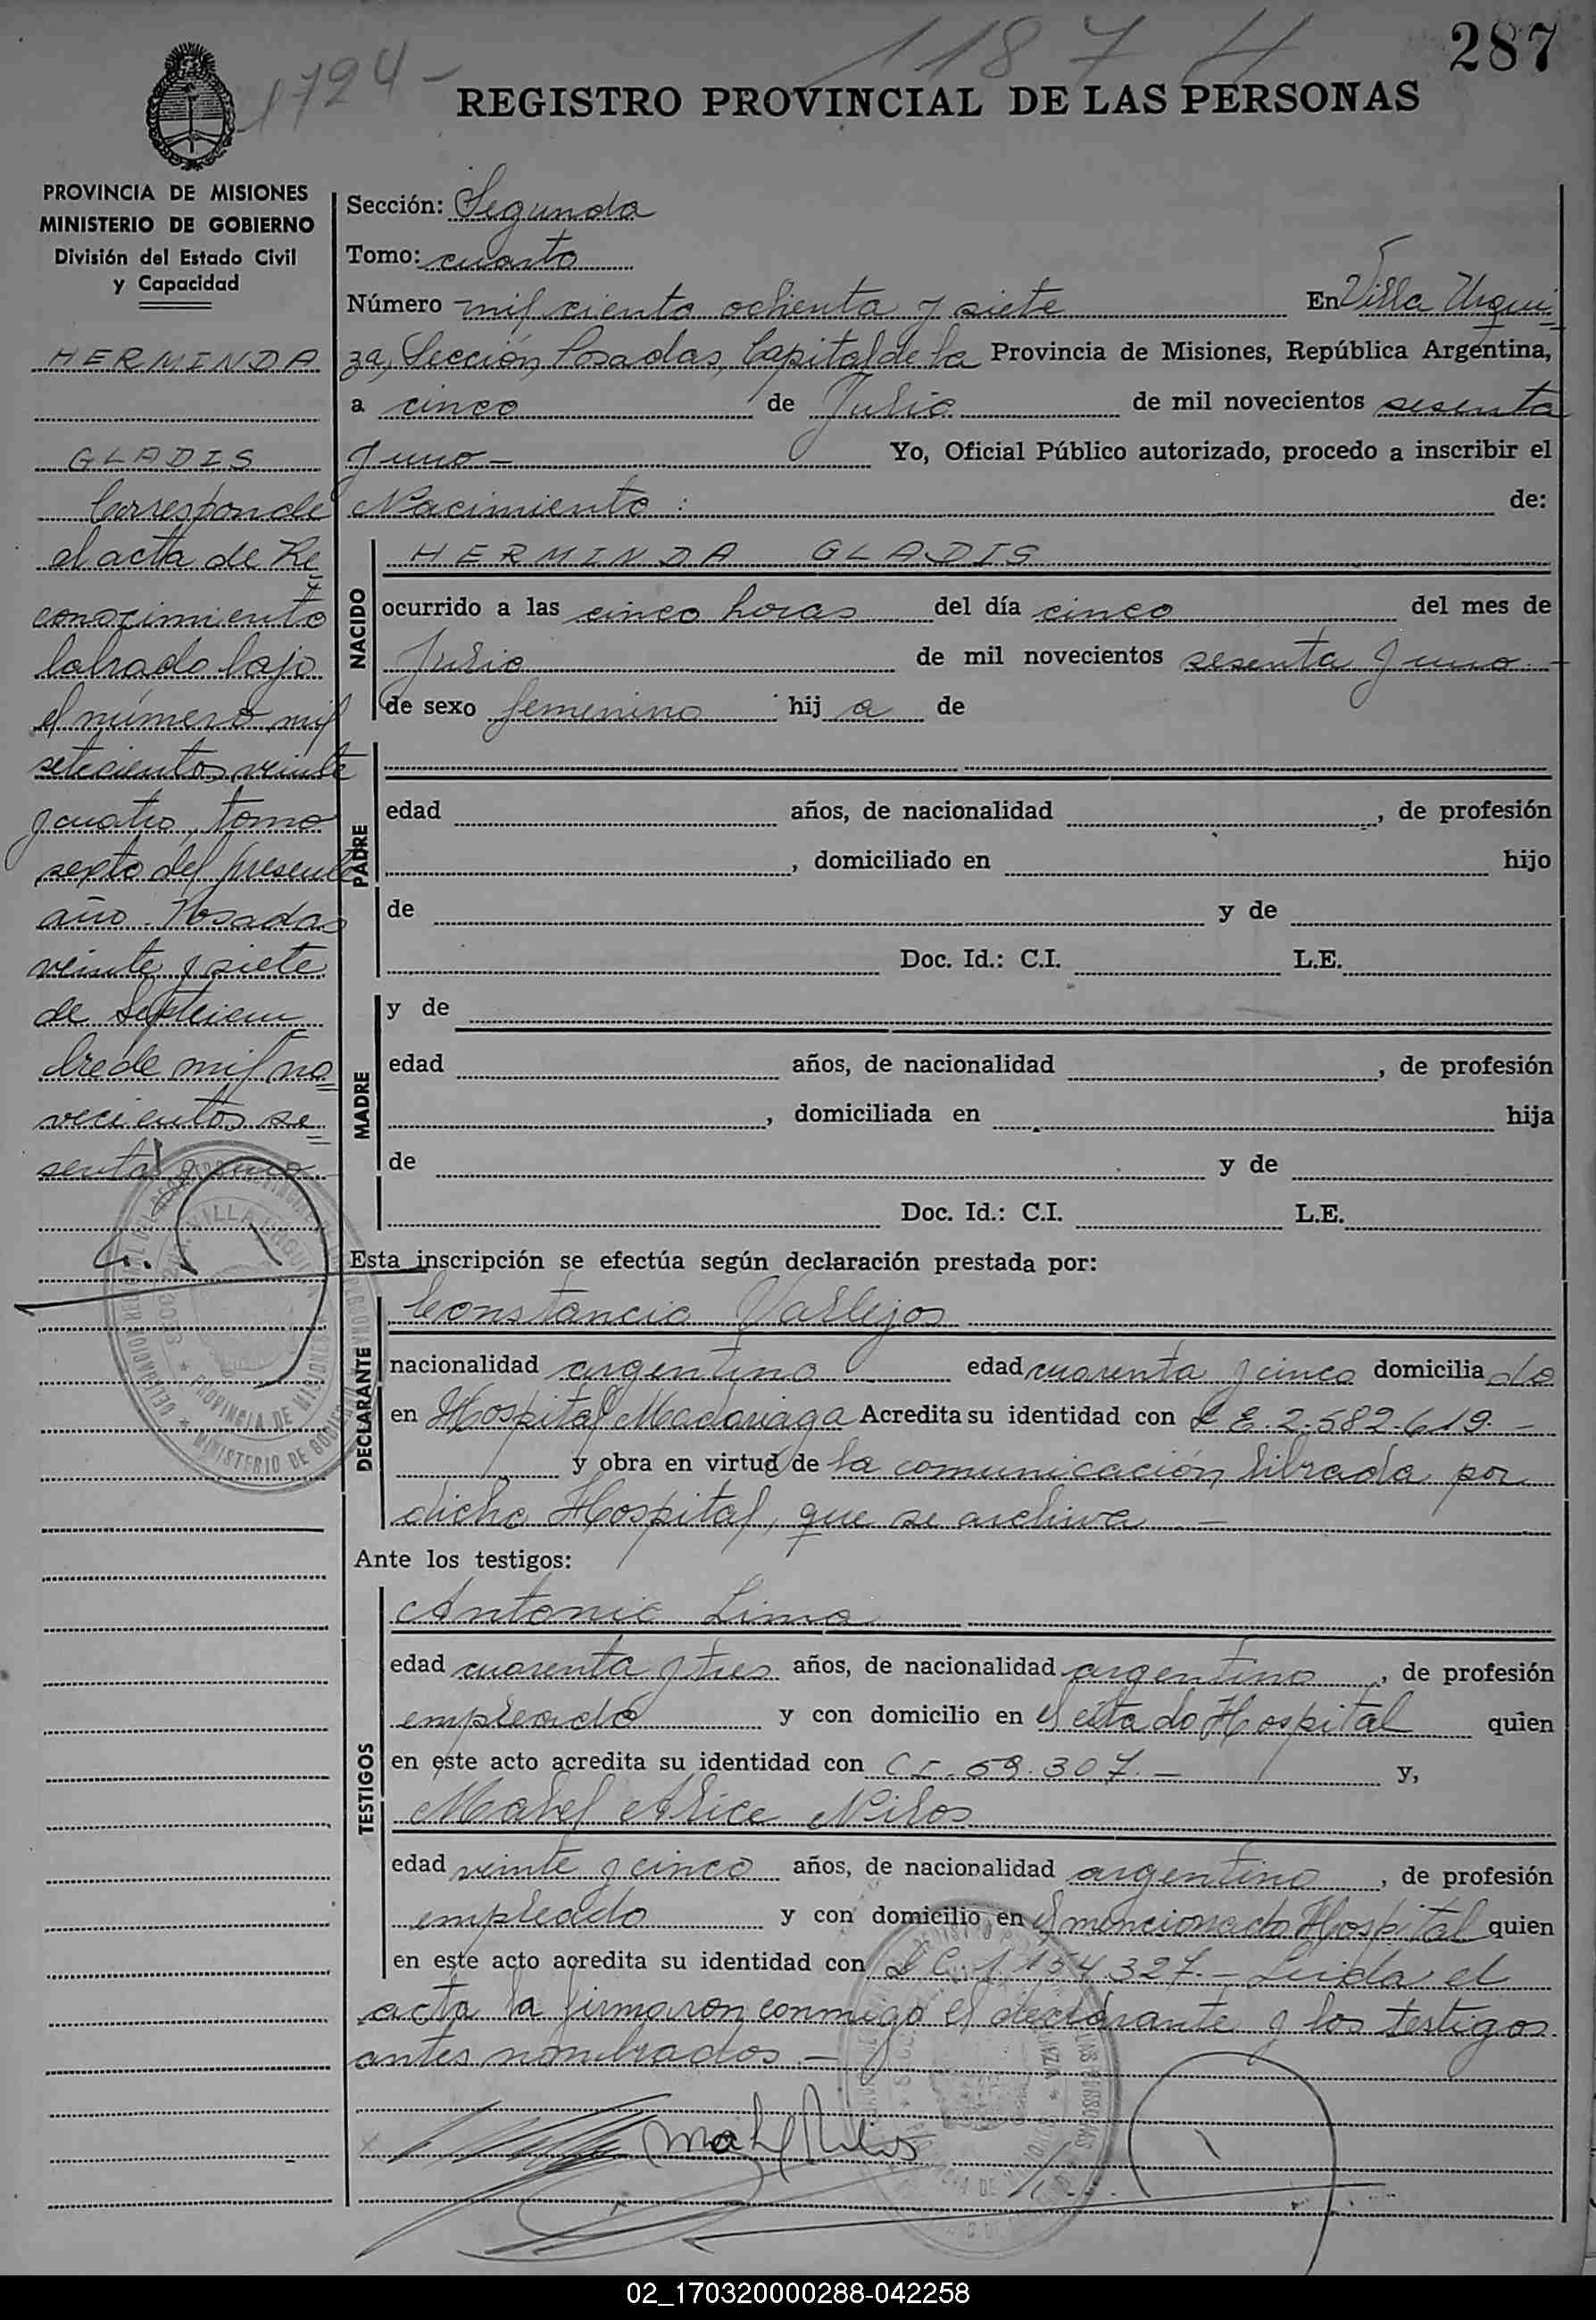 1724- 1187 H 287
REGISTRO PROVINCIAL DE LAS PERSONAS
PROVINCIA DE MISIONES
MINISTERIO DE GOBIERNO
División del Estado Civil
y Capacidad
HERMINDA
GLADIS
Corresponde
al acta de Re-
conocimiento
labrado bajo
el número mil
setecientos veinte
y cuatro, tomo
sexto del presente
año. Posadas
veinte y siete
de Septiem
bre de mil no=
vecientos se=
senta y uno
Sección: Segunda
Tomo: cuarto
Número mil ciento ochenta y siete En Villa Urqui-
za, Sección, Posadas, Capital de la Provincia de Misiones, República Argentina,
a cinco de Julio de mil novecientos sesenta
y uno- Yo, Oficial Público autorizado, procedo a inscribir el
Nacimiento: de:
NACIDO
HERMINDA GLADIS
ocurrido a las cinco horas del día cinco del mes de
Julio de mil novecientos sesenta y uno.-
de sexo femenino hij a de
PADRE
edad años, de nacionalidad , de profesión
, domiciliado en hijo
de y de
Doc. Id.: C.I. L.E.
MADRE
y de
edad años, de nacionalidad , de profesión
, domiciliada en hija
de y de
Doc. Id.: C.I. L.E.
Esta inscripción se efectúa según declaración prestada por:
DECLARANTE
Constancio Vallejos
nacionalidad argentino edad cuarenta y cinco domicilia do
en Hospital Madariaga Acredita su identidad con L E. 2.582.619.-
y obra en virtud de la comunicación librada por
dicho Hospital, que se archiva -
Ante los testigos:
TESTIGOS
Antonio Lima
edad cuarenta y tres años, de nacionalidad argentino, de profesión
empleado y con domicilio en el citado Hospital quien
en este acto acredita su identidad con CI. 59.307.- y,
Mabel Alice Nilos
edad veinte y cinco años, de nacionalidad argentino, de profesión
empleado y con domicilio en el mencionado Hospital quien
en este acto acredita su identidad con L C. 1.154.327.- Leida el
acta la firmaron conmigo el declarante y los testigos
antes nombrados.-
02_170320000288-042258